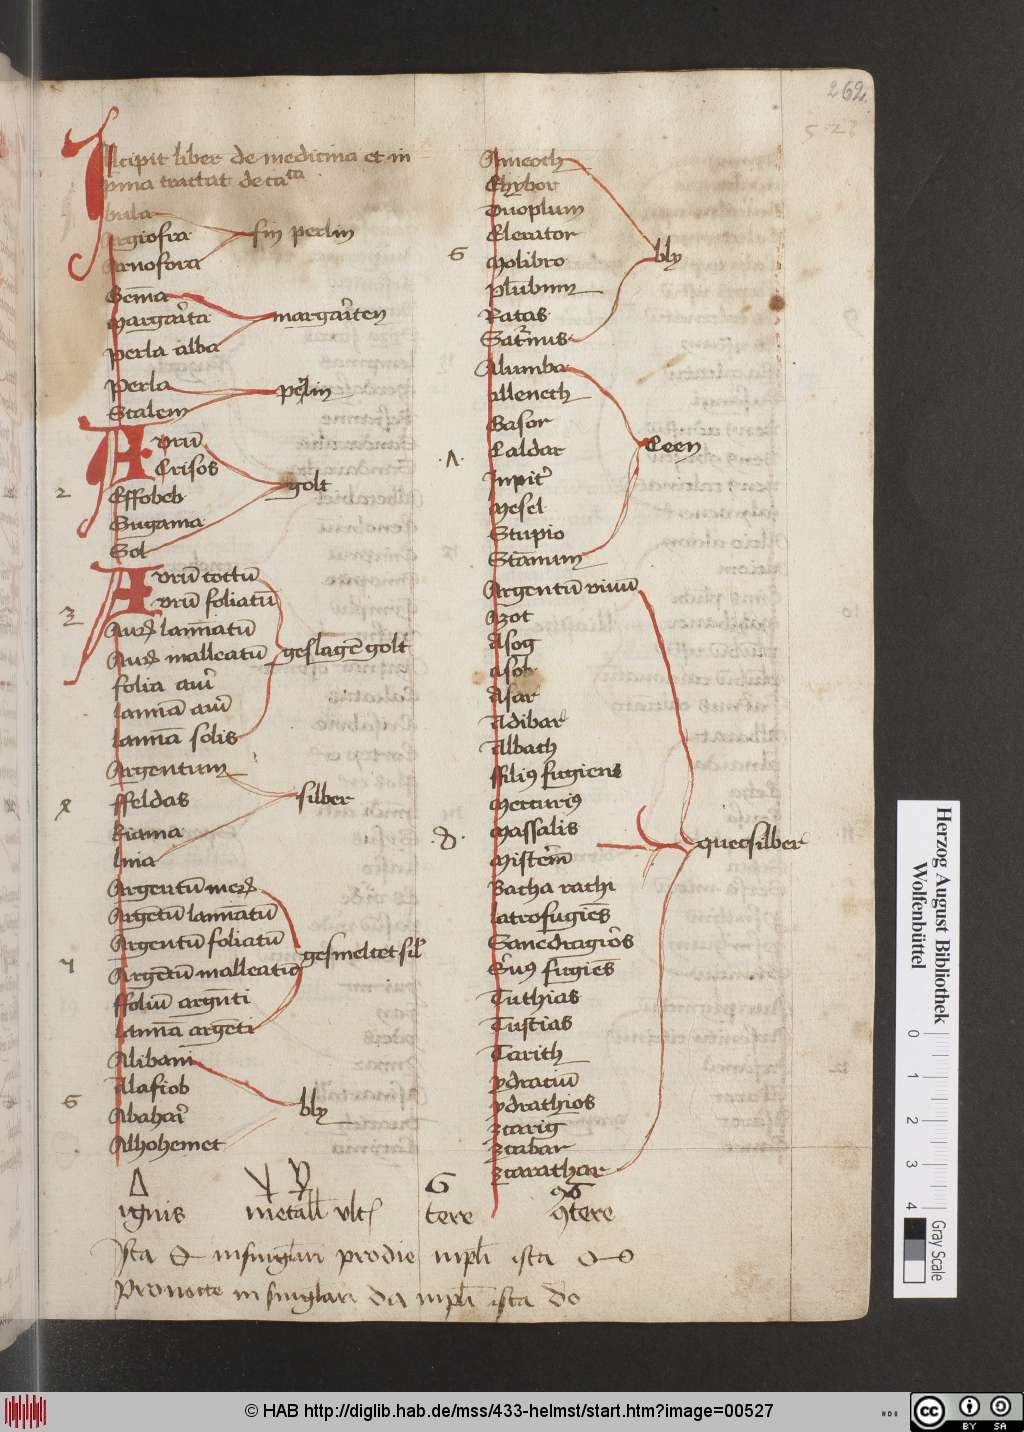 262
527
Incipit liber de medicina et in
pma tractat de cacta
bula
Argiofra
Arnofora
fin perlin
Gēma
Margarita
perla alba
margariten
perla
Stalem
perlin
Avrū
Crisos
Effobeb
Sugama
Sol
golt
2
Avrū coctū
vrū foliatū
laminatū
malleatū
folia auri
lamīa auri
lamīa solis
geslagē golt
3
Argentum
ffeldas
kiama
luna
silber
Argentū
Argētū laminatū
Argentū foliatū
Argētū malleatū
ffoliū argēti
lamīa argēti
gesmeltet silb
Alibani
Alafiob
Abahari
Alhohemet
bly
6
Ameoch
Chybor
Duoplum
Elerator
Molibro
plūbum
Ratas
Saturnus
bly
6
Alumba
Alleneth
Basor
Caldar
Jupiter
Mesel
Stupio
Stannum
Ceen
Argentū viuū
Azot
Asog
asob
Asar
Adibar
Albach
ffilius fugiens
Mercurius
Massalis
Misterim
Racha rachi
latrofugiēs
Sanedragiros
Seruus fugiēs
Tuthias
Tustias
Tarith
ydraciū
ydrathios
zcarig
zcabar
zcarathar
quecsilber
ignis
metall vlt
tere
tere
Ista insingulari prodie inpli ista
Pronocte in singlari da inpli ista do
Herzog August Bibliothek
Wolfenbüttel
0 1 2 3 4
Gray Scale
© HAB http://diglib.hab.de/mss/433-helmst/start.htm?image=00527
HDB
cc BY SA